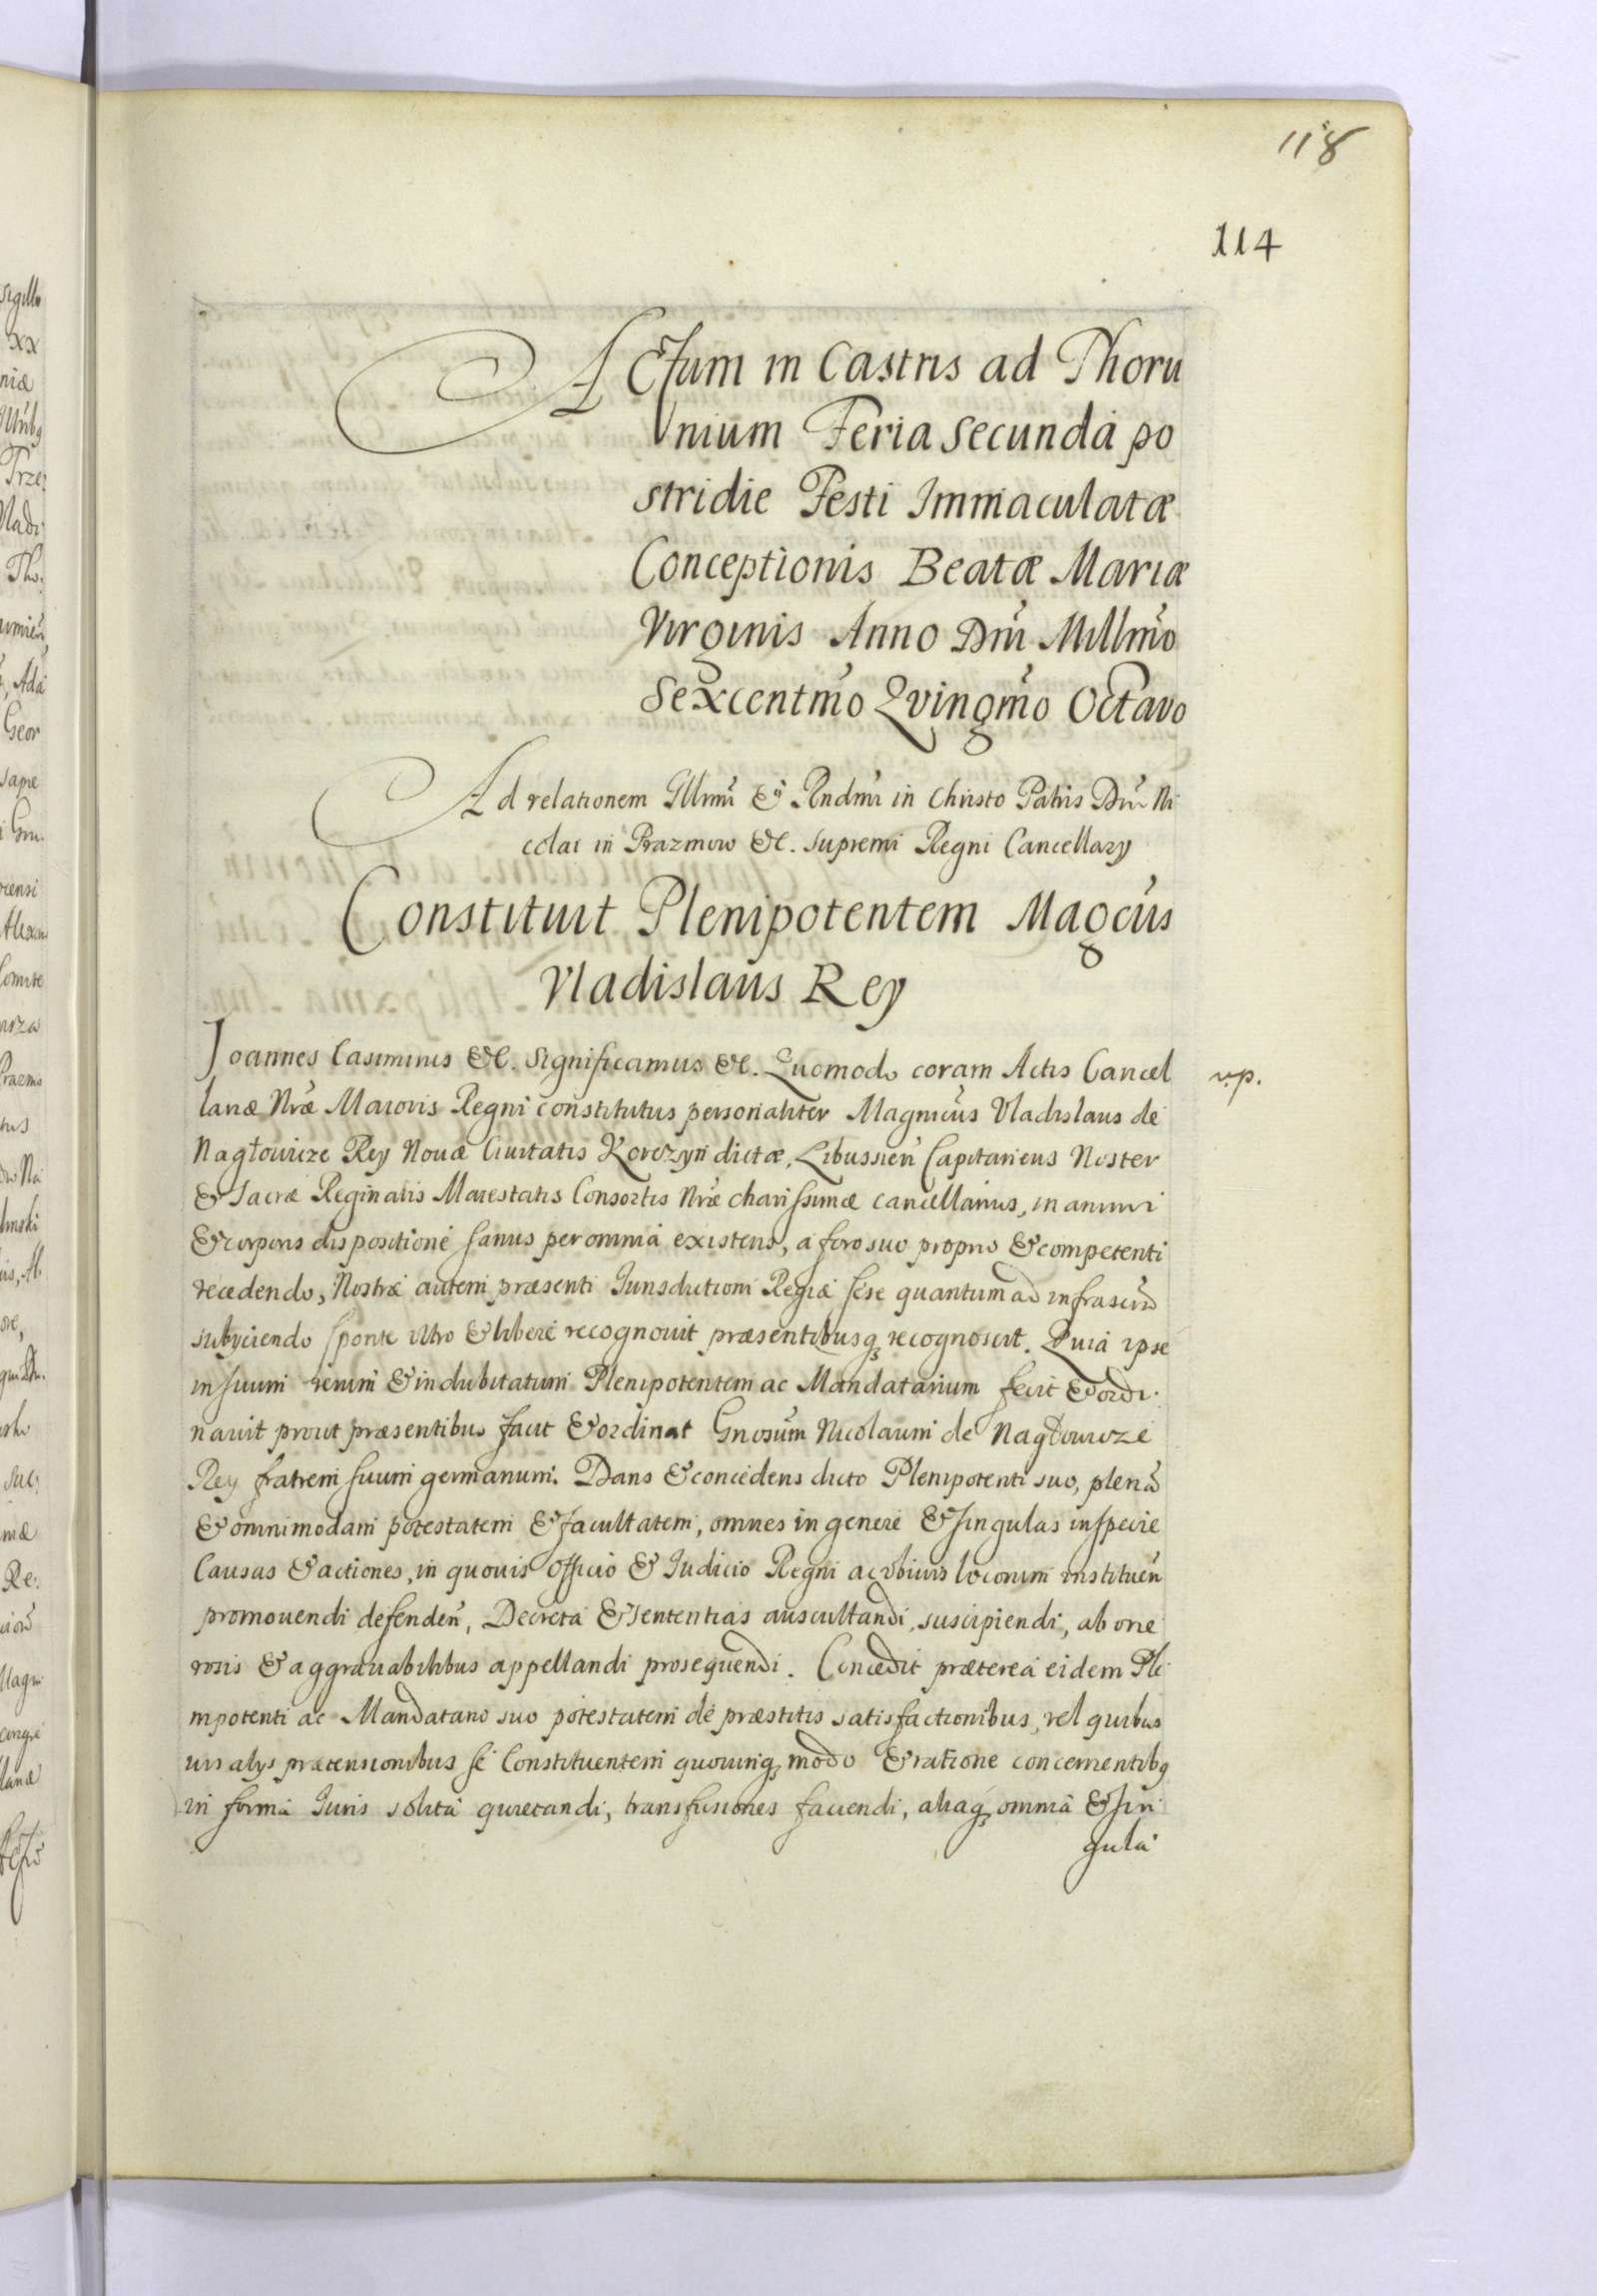 118
114
Actum in Castris ad Thoru
nium Feria Secunda po
stridie Festi Immaculatæ
Conceptionis Beatæ Mariæ
Virginis Anno Dni Millmo
Sexcentmo Qvingmo Octavo
Ad relationem Illmi & Rndmi in Christo Patris Dni Ni
colai in Prazmow &c. supremi Regni Cancellary
Constituit Plenipotentem Magcus
Vladislaus Rey
Joannes Casimirus &c. Significamus &c. Quomodo coram Actis Cancel
v.p.
lariæ Nræ Maioris Regni constitutus personaliter Magnicus Vladislaus de
Nagłowicze Rey Nouæ Ciuitatis Korczyn dictæ, Libussien Capitaneus Noster
& Sacræ Reginalis Maiestatis Consortis Nræ charissimæ cancellarius, in animi
& corporis dispositione sanus per omnia existens, a foro suo proprio & competenti
recedendo, Nostræ autem præsenti Iurisdictioni Regiæ sese quantum ad infrascrid
subyciendo sponte vltro & libere recognouit præsentibusq recognoscit. Quia ipse
in suum verum & indubitatum Plenipotentem ac Mandatarium fecit & ordi
nauit prout præsentibus facit & ordinat Gnosum Nicolaum de Nagłowicze
Rey fratrem suum germanum. Dans & concedens dicto Plenipotenti suo, plenā
& omnimodam potestatem & facultatem, omnes in genere & singulas in specie
Causas & actiones, in quouis Officio & Iudicio Regni ac vbiuis locorum instituen
promouendi defenden, Decreta & sententias auscultandi, suscipiendi, ab one
rosis & aggrauabilibus appellandi prosequendi. Concedit præterea eidem Ple
nipotenti ac Mandatario suo potestatem de præstitis satisfactionibus, vel quibus
uis alys prætensionibus se Constituentem quouinq modo & ratione concernentibq
in forma Iuris solita quietandi, transfusiones faciendi, aliaq omnia & sin
gula